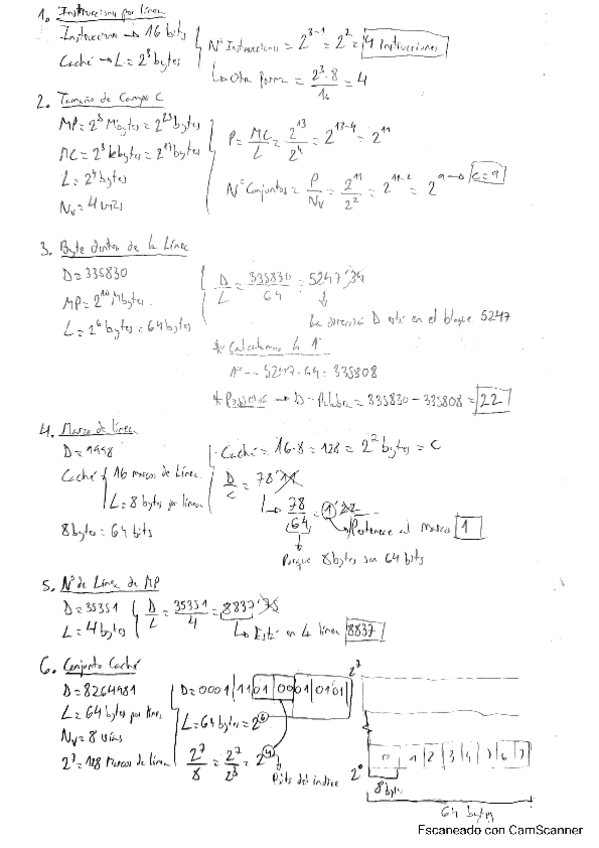 1. Instrucciones por línea
Instrucciones → 16 bits
Caché → L = 2³ bytes
Nº Instrucciones = 2³⁻¹ = 2² = 4 instrucciones
↳ Otra forma = 2³·8 / 16 = 4
2. Tamaño de Campo C
MP = 2⁵ Mbytes = 2²⁵ bytes
MC = 2³ kbytes = 2¹³ bytes
L = 2⁴ bytes
Nv = 4 vías
P = MC / L = 2¹³ / 2⁴ = 2¹³⁻⁴ = 2¹¹
Nº Conjuntos = P / Nv = 2¹¹ / 2² = 2¹¹⁻² = 2⁹ → C = 9
3. Byte dentro de la Línea
D = 335830
MP = 2¹⁰ Mbytes.
L = 2⁶ bytes = 64 bytes
D / L = 335830 / 64 = 5247'34
La dirección D está en el bloque 5247
* Calculamos la 1ª
1ª → 5247·64 = 335808
→ D - Palabra = 335830 - 335808 = 22
4. Marco de línea
D = 9998
Caché 16 marcos de línea.
L = 8 bytes por línea
8 bytes = 64 bits
Caché = 16·8 = 128 = 2⁷ bytes = C
D / C = 78'11
78 / 64 = 1'22
Pertenece al Marco 1
Porque 8 bytes son 64 bits
5. Nº de Línea de MP
D = 35351
L = 4 bytes
D / L = 35351 / 4 = 8837'75
↳ Está en la línea 8837
6. Conjunto Caché
D = 8264981
L = 64 bytes por línea
Nv = 8 vías
2⁷ = 128 Marcos de línea
D = 0001 | 1101 | 0001 | 0101
L = 64 bytes = 2⁶
2⁷ / 8 = 2⁷ / 2³ = 2⁴
Bits del índice
2⁷
2⁰
0 1 2 3 4 5 6 7
8 bytes
64 bytes
Escaneado con CamScanner